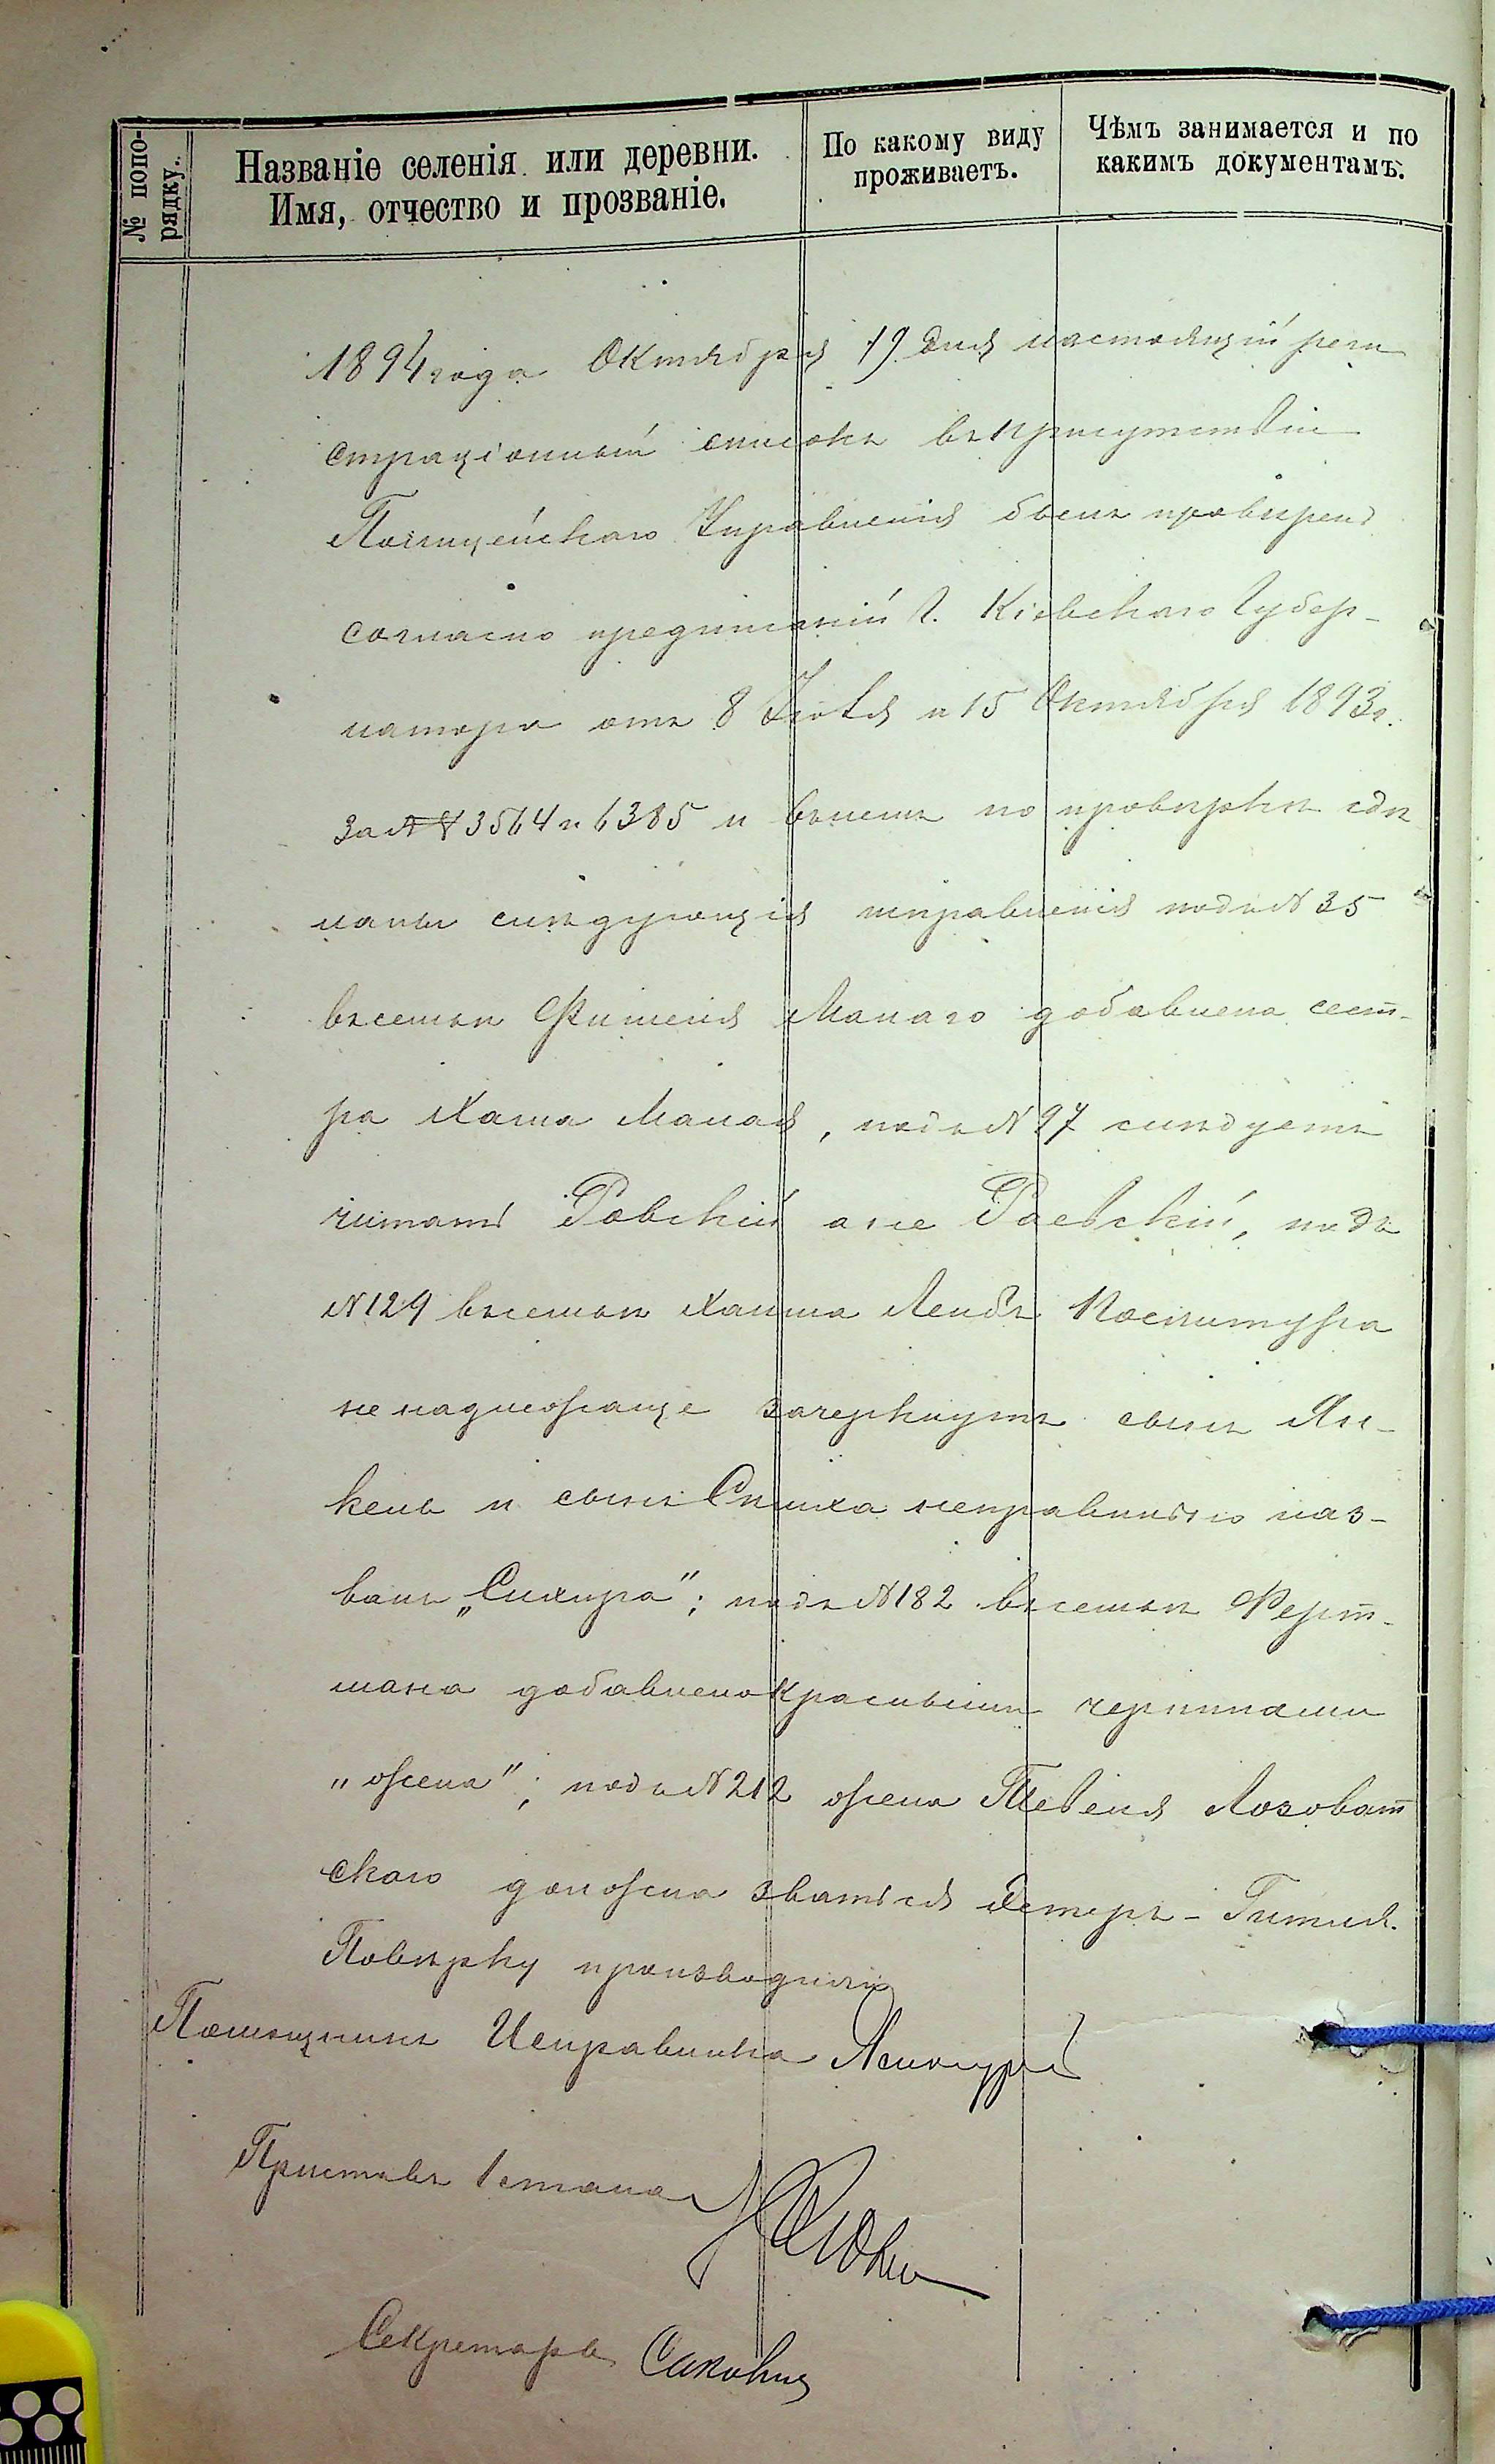 № попо-
рядку.
Названіе селенія или деревни.
Имя, отчество и прозваніе.
По какому виду
проживаетъ.
Чѣмъ занимается и по
какимъ документамъ.
1894 года Октября 19 дня настоящій реги
страціонный списокъ въ присутствіи
Полицейскаго Управленія былъ провѣренъ
согласно предписаній Г. Кіевскаго Губер-
натора отъ 8 Іюля и 15 Октября 1893 г.
за №№ 3564 и 6385 и вѣ по провѣркѣ сдѣ
ланы слѣдующія исправленія подъ № 35
въ семьи Фишеля Малаго добавлена сест-
ра Хана Малая, подъ № 97 слѣдуетъ
читать Ровскій а не Раевскій, подъ
№ 129 въ семьи Хаима Лейбъ Посмитура
не надлежаще зачеркнутъ сынъ Ян-
кель и сынъ неправильно наз-
ванъ „Симхура"; подъ № 182 въ семьи Ферт-
мана добавлено красными чернилами
„жена"; подъ № 212 жена Тевеля Лозоват
скаго должна зваться Эстеръ-Гитля.
Повѣрку производили:
Помощникъ Исправника
Приставъ 1 стана
Секретарь